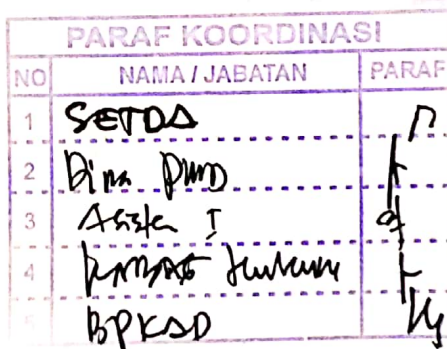 PARAF KOORDINASI
NO NAMA / JABATAN PARAF
1 SETDA
2 Dinas PMD
3 Asisten I
4 KABAG Hukum
5 BPKAD